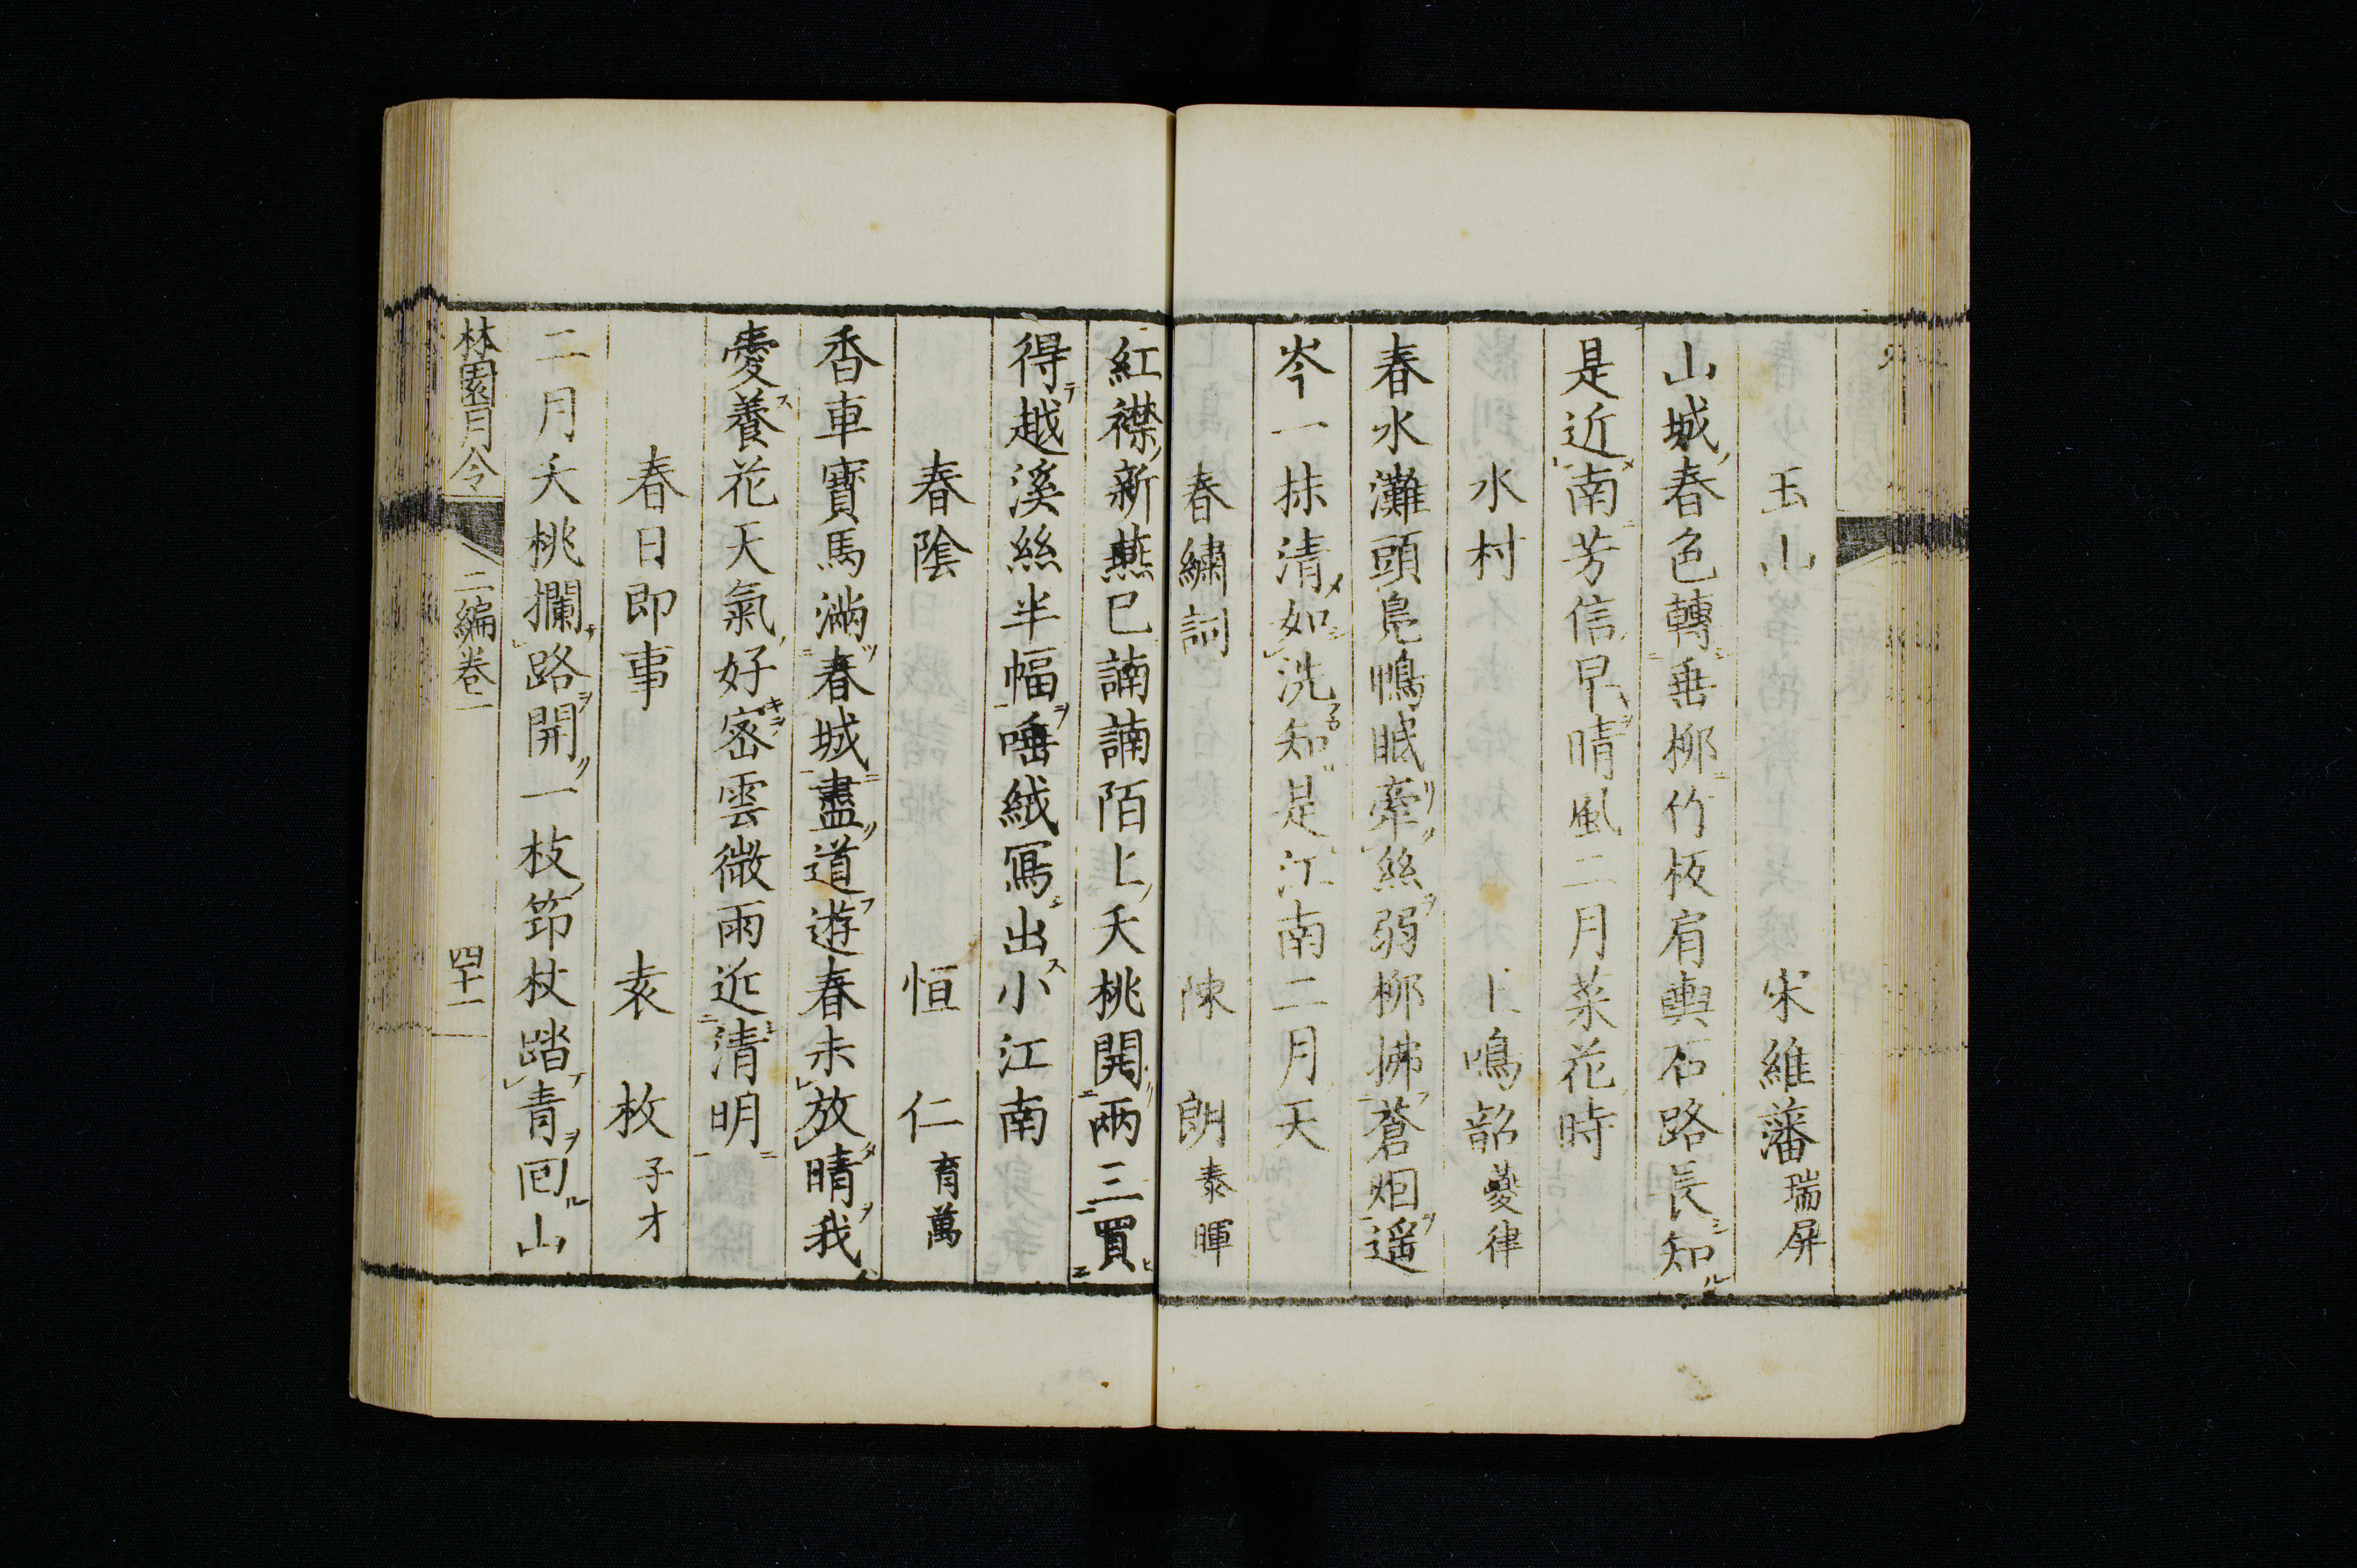 玉山 宋維藩瑞屏
山城春色轉垂柳竹板肩輿石路長知
是近南芳信早晴風二月菜花時
水村 上鳴韶夔律
春水灘頭鳧鴨眠牽絲弱柳拂蒼烟遥
岑一抹清如洗知是江南二月天
春繍詞 陳朗泰暉
紅襟新燕已諵諵陌上夭桃開兩三買
得越溪絲半幅唾絨寫出小江南
春陰 恒仁育萬
香車寳馬滿春城盡道遊春未放晴我
愛養花天氣好密雲微雨近清明
春日即事 袁枚子才
二月夭桃攔路開一枝笻杖踏青回山
林園月令 二編卷一 四十一